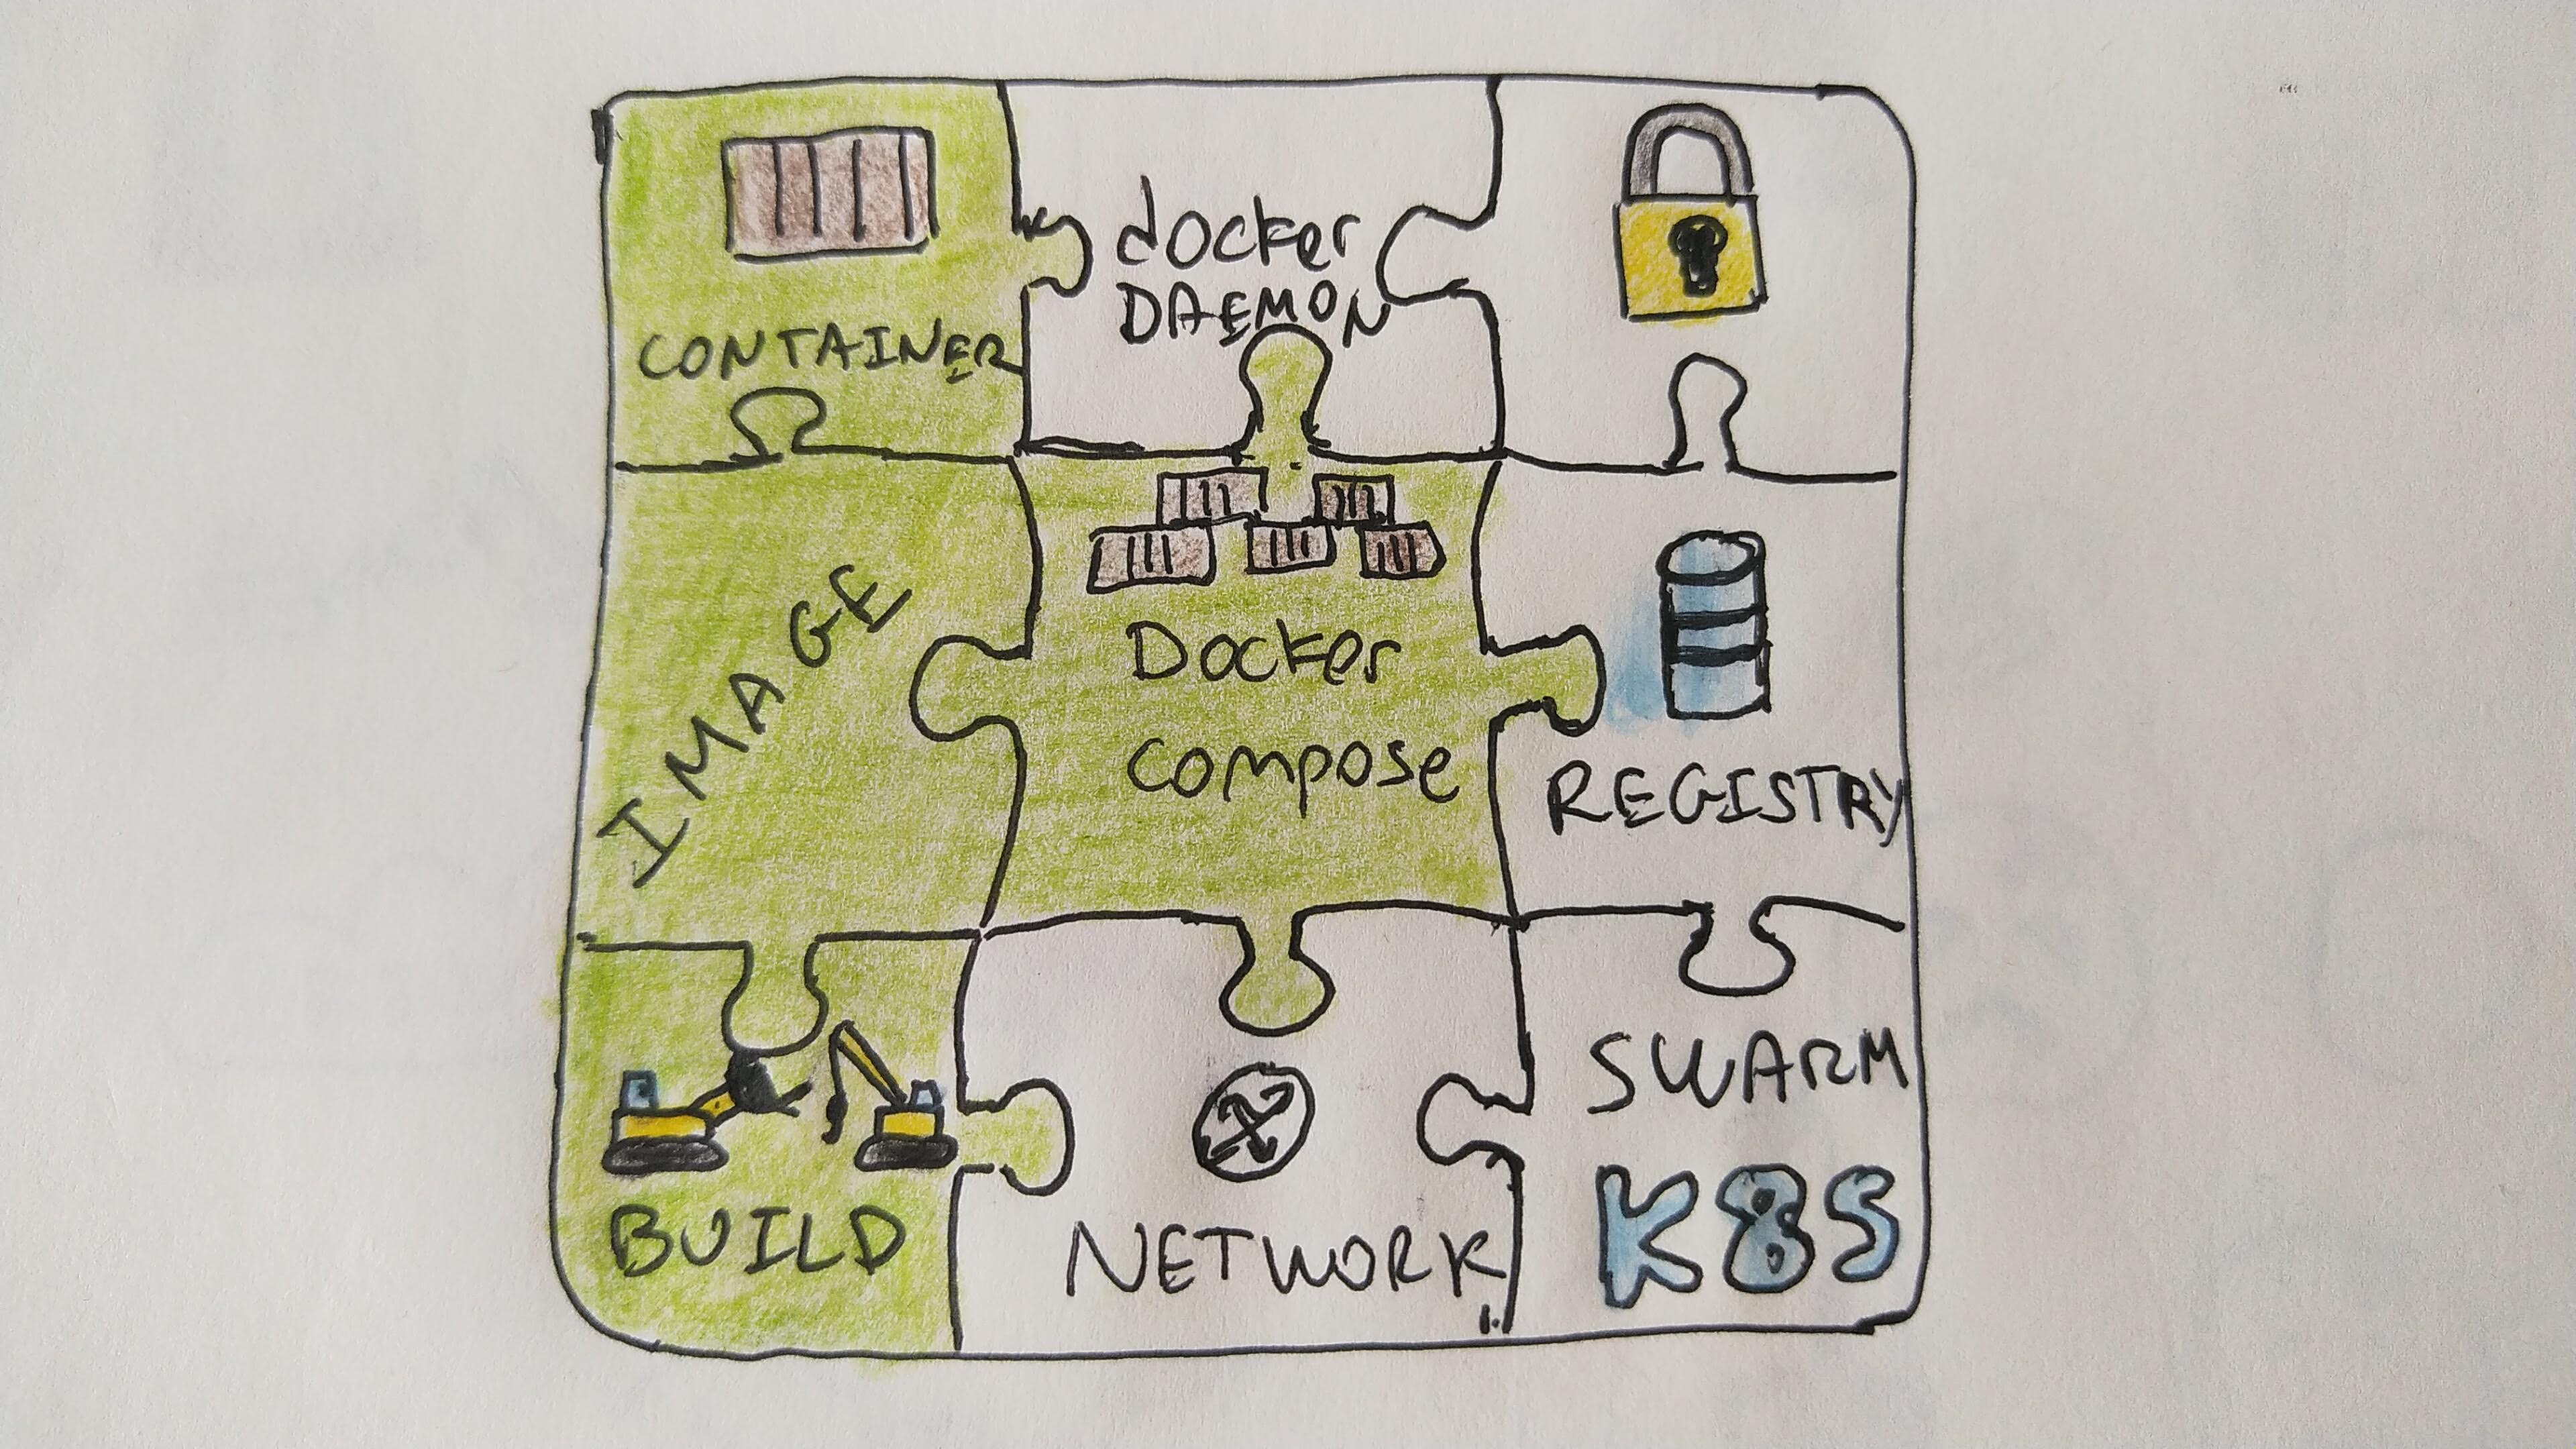 CONTAINER
docker
DAEMON
IMAGE
Docker
compose
REGISTRY
BUILD
NETWORK
SWARM
K8S